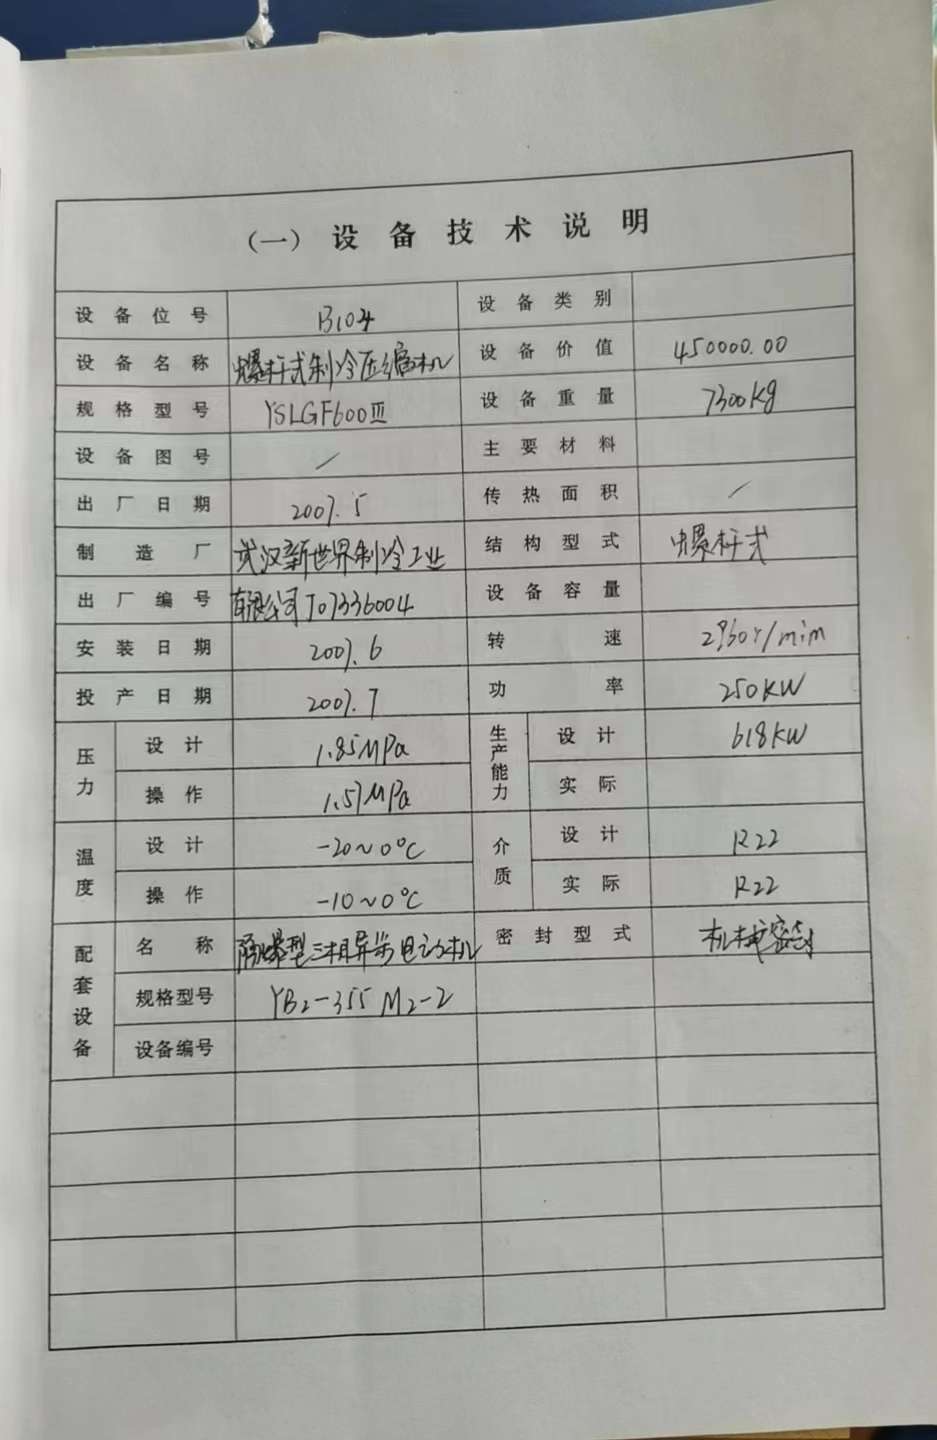 （一）设备技术说明
设备位号 B104 设备类别
设备名称 螺杆式制冷压缩机 设备价值 450000.00
规格型号 YSLGF600Ⅲ 设备重量 7300Kg
设备图号 / 主要材料
出厂日期 2007.5 传热面积 /
制造厂 武汉新世界制冷工业 结构型式 螺杆式
出厂编号 有限公司J07336004 设备容量
安装日期 2007.6 转速 2960r/min
投产日期 2007.7 功率 250KW
压力 设计 1.85MPa 生产能力 设计 618KW
操作 1.57MPa 实际
温度 设计 -20~0℃ 介质 设计 R22
操作 -10~0℃ 实际 R22
配套设备 名称 隔爆型三相异步电动机 密封型式 机械密封
规格型号 YB2-355M2-2
设备编号